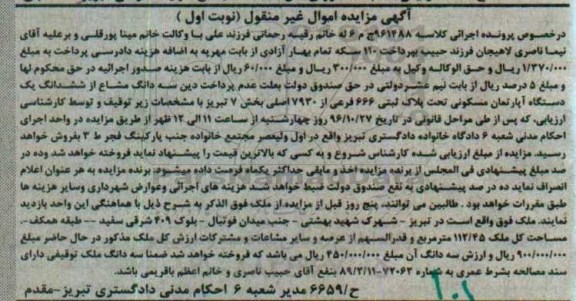 آگهی مزایده اموال غیر منقول (نوبت اول)
درخصوص پرونده اجرائی کلاسه ۹۶۱۴۸۸ج م ۶ له خانم رقیه رحمانی فرزند علی با وکالت خانم مینا پورقلی و برعلیه آقای
نیما ناصری لاهیجان فرزند حبیب بپرداخت ۱۱۰ سکه تمام بهار آزادی از بابت مهریه به اضافه هزینه دادرسی پرداخت به مبلغ
۱/۳۷۰/۰۰۰ ریال و حق الوکاله وکیل به مبلغ ۳۰۰/۰۰۰ ریال و مبلغ ۶۰/۰۰۰ ریال از بابت هزینه صدور اجرائیه در حق محکوم لها
و مبلغ ۵ درصد ریال از بابت نیم عشر دولتی در حق صندوق دولت بعلت عدم پرداخت دین سه دانگ مشاع از ششدانگ یک
دستگاه آپارتمان مسکونی تحت پلاک ثبتی ۶۶۶ فرعی از ۷۹۳۰ اصلی بخش ۷ تبریز با مشخصات زیر توقیف و توسط کارشناسی
ارزیابی، که پس از طی مراحل قانونی در تاریخ ۹۶/۱۰/۲۷ روز چهارشنبه از ساعت ۱۱ الی ۱۲ ظهر از طریق مزایده در واحد اجرای
احکام مدنی شعبه ۶ دادگاه خانواده دادگستری تبریز واقع در اول ولیعصر مجتمع خانواده جنب پارکینگ فجر ط ۳ بفروش خواهد
رسید. مزایده از مبلغ ارزیابی شده کارشناس شروع و به کسی که بالاترین قیمت را پیشنهاد نماید فروخته خواهد شد وده در
صد مبلغ پیشنهادی فی المجلس از برنده مزایده اخذ و مابقی حداکثر یکماه فرصت داده میشود برنده مزایده به هر عنوان اعلام
انصراف نماید ده در صد پیشنهادی به نفع صندوق دولت ضبط خواهد شد هزینه های اجرائی وعوارض شهرداری وسایر هزینه ها
طبق مقررات خواهد بود. طالبین می توانند، پنج روز قبل از مزایده از ملک فوق الذکر به شرح ذیل با هماهنگی این واحد بازدید
نمایند. ملک فوق واقع است در تبریز - شهرک شهید بهشتی - جنب میدان فوتبال - بلوک ۴۰۹ شرقی سفید -- طبقه همکف.
مساحت کل ملک ۱۱۲/۴۵ مترمربع و قدرالسهم از عرصه و سایر مشاعات و مشترکات ارزش کل ملک مذکور در حال حاضر مبلغ
۹۰۰/۰۰۰/۰۰۰ ریال و ارزش سه دانگ آن مبلغ ۴۵۰/۰۰۰/۰۰۰ ریال می باشد که فروخته خواهد شد ضمنا سه دانگ ملک توقیفی دارای
سند مصالحه بشرط عمری به شماره ۷۲۰۶۲-۸۹/۲/۱۱ بنفع آقای حبیب ناصری و خانم اعظم باقریمی باشد.
ح/۶۶۵۹ مدیر شعبه ۶ احکام مدنی دادگستری تبریز-مقدم